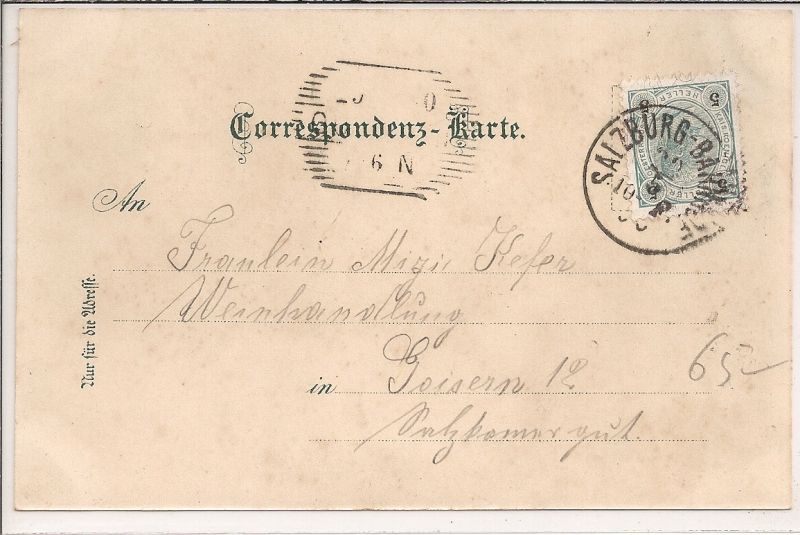 Correspondenz-Karte.
6 N
5
HELLER
SALZBURG-BAHNHOF
10
An
Fräulein Mizi Kefer
Weinhandlung
in Goisern 12
Salzkamergut.
Nur für die Adresse.
65-